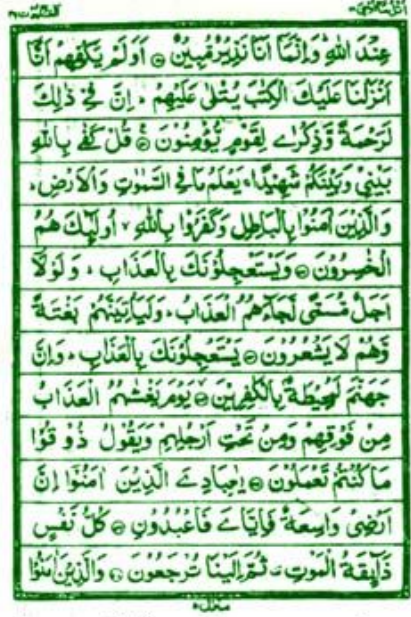 اتل ما اوحی ۲۱ العنکبوت ۲۹
عِنْدَ اللّٰهِ وَاِنَّمَاۤ اَنَا نَذِیْرٌ مُّبِیْنٌ ۝ اَوَلَمْ یَكْفِهِمْ اَنَّاۤ
اَنْزَلْنَا عَلَیْكَ الْكِتٰبَ یُتْلٰی عَلَیْهِمْ ؕ اِنَّ فِیْ ذٰلِكَ
لَرَحْمَةً وَّذِكْرٰی لِقَوْمٍ یُّؤْمِنُوْنَ ۝ قُلْ كَفٰی بِاللّٰهِ
بَیْنِیْ وَبَیْنَكُمْ شَهِیْدًا ۚ یَعْلَمُ مَا فِی السَّمٰوٰتِ وَالْاَرْضِ ؕ
وَالَّذِیْنَ اٰمَنُوْا بِالْبَاطِلِ وَكَفَرُوْا بِاللّٰهِ ۙ اُولٰٓئِكَ هُمُ
الْخٰسِرُوْنَ ۝ وَیَسْتَعْجِلُوْنَكَ بِالْعَذَابِ ؕ وَلَوْلَاۤ
اَجَلٌ مُّسَمًّی لَّجَآءَهُمُ الْعَذَابُ ؕ وَلَیَاْتِیَنَّهُمْ بَغْتَةً
وَّهُمْ لَا یَشْعُرُوْنَ ۝ یَسْتَعْجِلُوْنَكَ بِالْعَذَابِ ؕ وَاِنَّ
جَهَنَّمَ لَمُحِیْطَةٌۢ بِالْكٰفِرِیْنَ ۝ یَوْمَ یَغْشٰىهُمُ الْعَذَابُ
مِنْ فَوْقِهِمْ وَمِنْ تَحْتِ اَرْجُلِهِمْ وَیَقُوْلُ ذُوْقُوْا
مَا كُنْتُمْ تَعْمَلُوْنَ ۝ یٰعِبَادِیَ الَّذِیْنَ اٰمَنُوْۤا اِنَّ
اَرْضِیْ وَاسِعَةٌ فَاِیَّایَ فَاعْبُدُوْنِ ۝ كُلُّ نَفْسٍ
ذَآئِقَةُ الْمَوْتِ ثُمَّ اِلَیْنَا تُرْجَعُوْنَ ۝ وَالَّذِیْنَ اٰمَنُوْا
منزل ۵